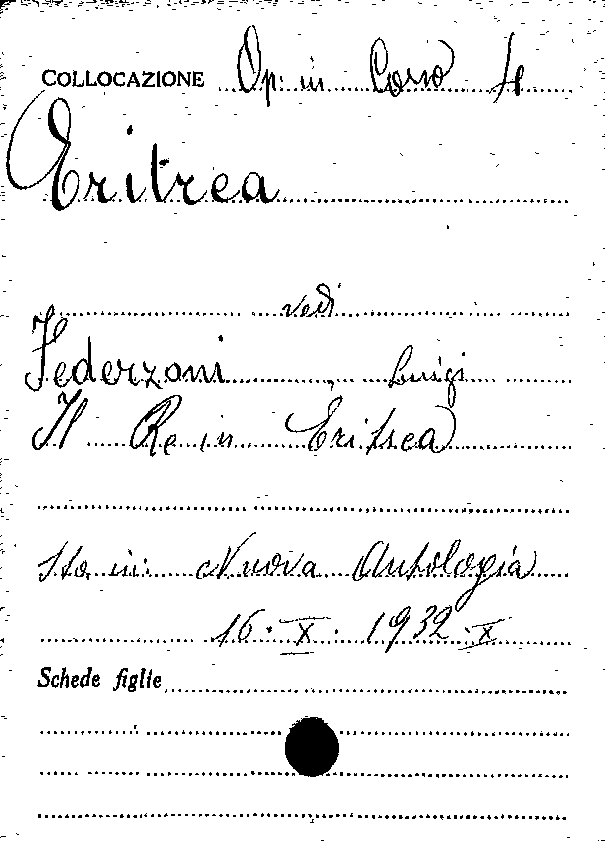 COLLOCAZIONE Op. in Corso 4
Eritrea
vedi
Federzoni Luigi
Il Re in Eritrea
Sta in: Nuova Antologia
16. X. 1932. X
Schede figlie